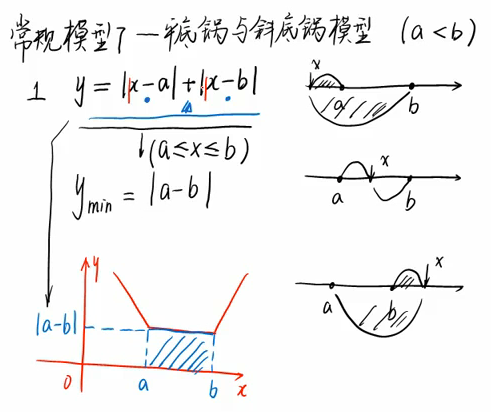 常规模型7 — 平底锅与斜底锅模型 (a<b)
1 y = |x-a|+|x-b|
(a≤x≤b)
y_min = |a-b|
x
a b
x
a b
x
a b
y
|a-b|
0 a b x